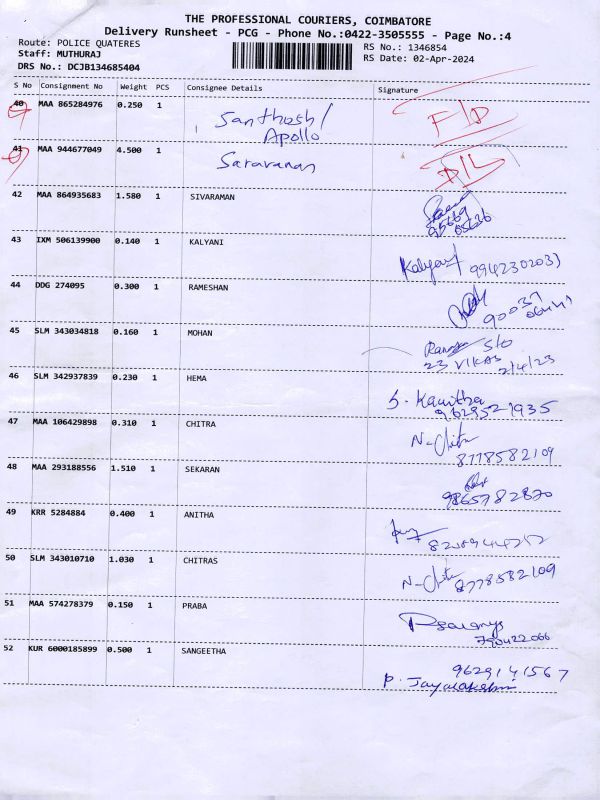 THE PROFESSIONAL COURIERS, COIMBATORE
Delivery Runsheet - PCG - Phone No.:0422-3505555 - Page No.:4
Route: POLICE QUATERES
Staff: MUTHURAJ
DRS No.: DCJB134685404
RS No.: 1346854
RS Date: 02-Apr-2024
S No Consignment No Weight PCS Consignee Details Signature
40 MAA 865284976 0.250 1 Santhosh/ Apollo F/D
41 MAA 944677049 4.500 1 Saravanan D/L
42 MAA 864935683 1.580 1 SIVARAMAN
43 IXM 506139900 0.140 1 KALYANI Kalyani 9942302031
44 DDG 274095 0.300 1 RAMESHAN
45 SLM 343034818 0.160 1 MOHAN S/o
23 VIKAS 2/4/23
46 SLM 342937839 0.230 1 HEMA S. Kavitha
9629521935
47 MAA 106429898 0.310 1 CHITRA N-Chitra
8778582109
48 MAA 293188556 1.510 1 SEKARAN
9865782820
49 KRR 5284884 0.400 1 ANITHA
50 SLM 343010710 1.030 1 CHITRAS N-Chitra 8778582109
51 MAA 574278379 0.150 1 PRABA
52 KUR 6000185899 0.500 1 SANGEETHA 9629141567
P. Jayalakshmi